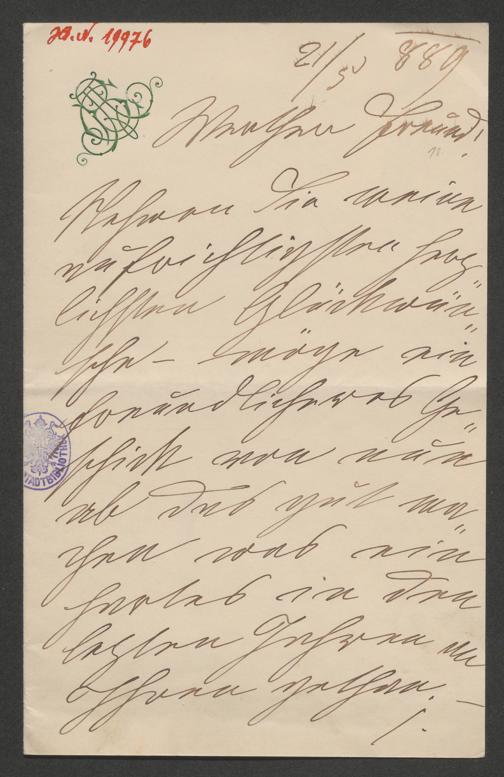 J.N. 19976
21/5 889
Werther Freund!
Nehmen Sie meine
aufrichtigsten herz„
lichsten Glückwün„
sche – möge ein
freundlicheres Ge„
schick von nun
ab das gut ma
chen was ein
hartes in den
letzten Jahren an
Ihnen gethan. –
/.
STADTBIBLIOTHEK